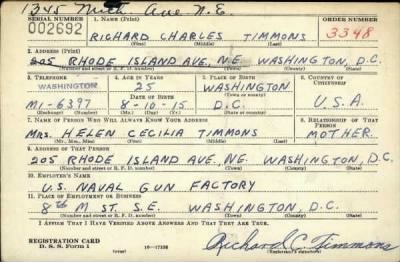 1345 Ave N.E.
SERIAL NUMBER 1. NAME (Print) ORDER NUMBER
002692 RICHARD CHARLES TIMMONS 3348
(First) (Middle) (Last)
2. ADDRESS (Print)
205 RHODE ISLAND AVE., N.E. WASHINGTON, D.C.
(Number and street or R. F. D. number) (Town) (County) (State)
3. TELEPHONE 4. AGE IN YEARS 5. PLACE OF BIRTH 6. COUNTRY OF CITIZENSHIP
WASHINGTON 25 WASHINGTON
DATE OF BIRTH (Town or county)
MI-6397 8-10-15 D.C. U.S.A.
(Exchange) (Number) (Mo.) (Day) (Yr.) (State or country)
7. NAME OF PERSON WHO WILL ALWAYS KNOW YOUR ADDRESS 8. RELATIONSHIP OF THAT PERSON
MRS. HELEN CECILIA TIMMONS MOTHER.
(Mr., Mrs., Miss) (First) (Middle) (Last)
9. ADDRESS OF THAT PERSON
205 RHODE ISLAND AVE., NE. WASHINGTON, D.C.
(Number and street or R. F. D. number) (Town) (County) (State)
10. EMPLOYER'S NAME
U.S. NAVAL GUN FACTORY
11. PLACE OF EMPLOYMENT OR BUSINESS
8TH M ST. S.E. WASHINGTON, D.C.
(Number and street or R. F. D. number) (Town) (County) (State)
I AFFIRM THAT I HAVE VERIFIED ABOVE ANSWERS AND THAT THEY ARE TRUE.
REGISTRATION CARD
D. S. S. Form 1 (over) 16-17105 Richard C. Timmons
(Registrant's signature)